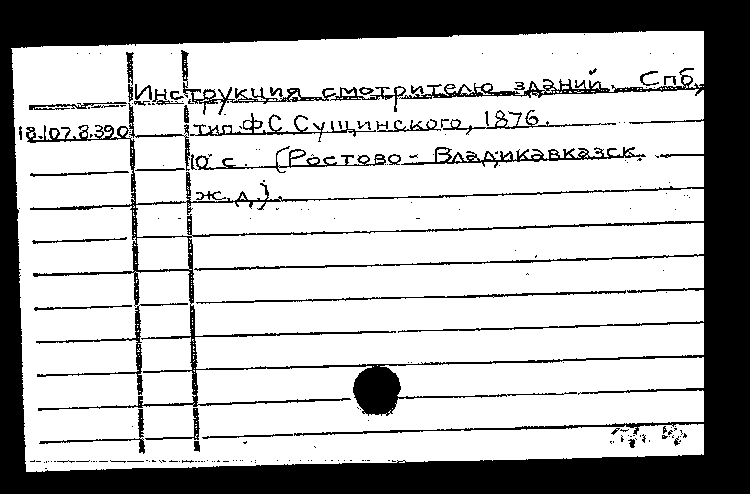 Инструкция смотрителю зданий. Спб,
18.107.8.390 тип. Ф.С Сущинского, 1876.
10 с. (Ростово-Владикавказск.
ж.д.).